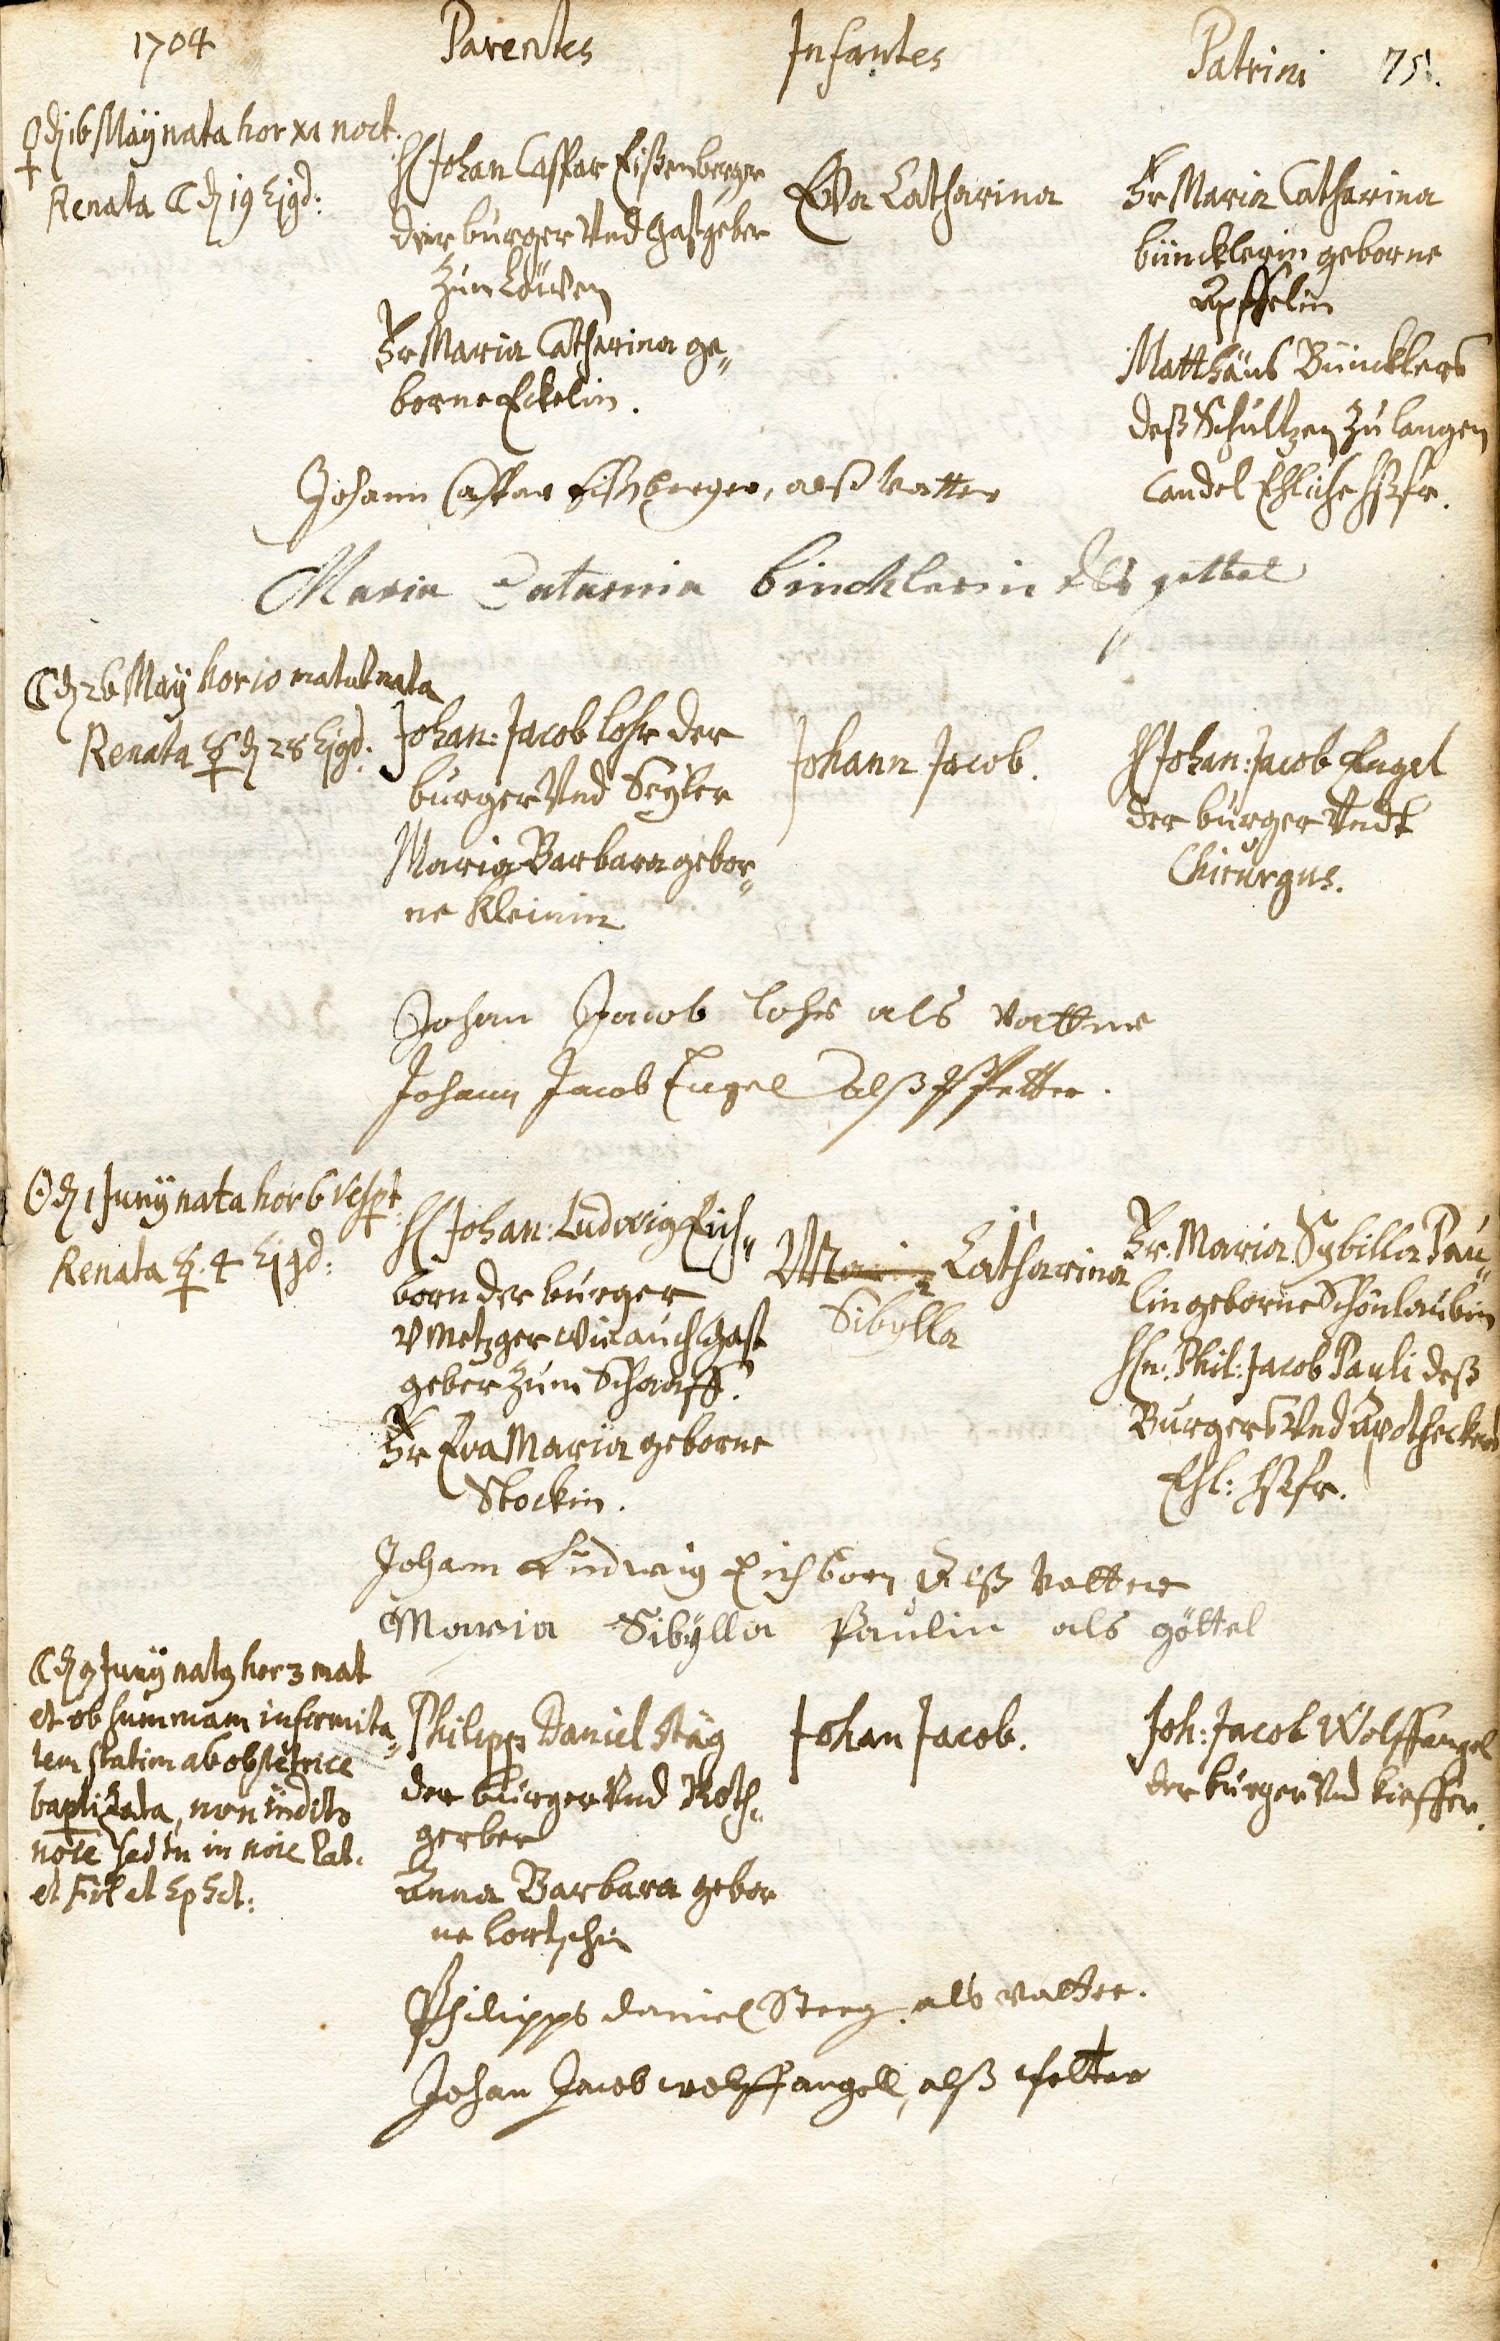 1704
Parentes
Infantes
Patrini
75.
♀ dj 16 Maÿ nata hor XI noct.
Renata ☾ dj 19 Ejgd:
H Johan Casspar Eißenberger
der burger Und Gastgeber
zum Löwen
Fr Maria Catharina ge„
borne Eckelin.
Eva Catharina
Fr Maria Catharina
büncklerin geborne
Apffelin
Matthäus Büncklers
deß Schultzen zu langen
Candel Ehliche Hßfr.
Johann Casspar Eißenberger, alß Vatter
Maria Catarina bincklerin als gettel
☾ dj 26 Maÿ hor 10 matut nata
Renata ☿ dj 28 Ejgd:
Johan: Jacob Lohr der
burger Und Seyler
Maria Barbara gebor„
ne Kleinin
Johann Jacob.
H Johan: Jacob Engel
der burger Undt
Chirurgus.
Johan Jacob Lohr als vatter
Johann Jacob Engel alß Pfetter.
☉ dj 1 Junÿ nata hor 6 Vespt.
Renata ☿. 4 Ejgd:
H Johan: Ludwig Eich„
born der burger
V Metzger wie auch Gast
geber zum Schaaff.
Fr Eva Maria geborne
Stockin.
Maria Catharina
Sibylla
Fr. Maria Sybilla Pau„
lin geborne Schönlaubin
Hn: Phil: Jacob Pauli deß
Burgers Und Apotheckers
Ehl: Hßfr.
Johann Ludwig Eichborn Alß Vatter
Maria Sibÿlla Paulin als göttel
☾ dj 9 Junÿ natq hor 3 mat
et ob summam infirmita„
tem statim ab obstetrice
baptizata, non indito
noie sed tn in noie Pat.
et Fil et Sp Sct:
Philipp Daniel Stäg
der burger Und Roth„
gerber
Anna Barbara gebor
ne Lortzschin
Johan Jacob.
Joh: Jacob Wolffangel
der burger Und Kieffer.
Philipps daniel Steeg. als vatter.
Johan Jacob wolffangell, alß pfetter